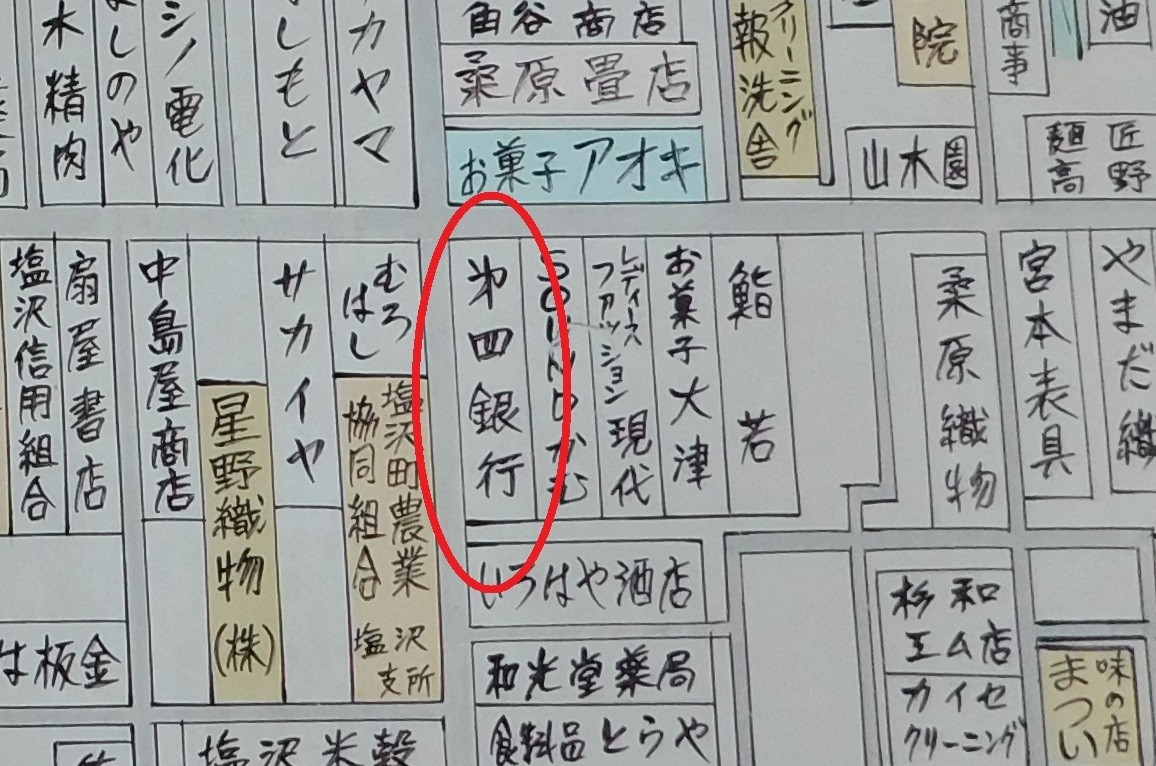 木精肉
しのや
シノ電化
しもと
カヤマ
角谷商店
桑原畳店
お菓子アオキ
クリーニング
報洗舎
院
山木園
商事
油
麺匠
高野
塩沢信用組合
扇屋書店
中島屋商店
星野織物(株)
サカイヤ
むろはし
塩沢町農業
協同組合
塩沢
支所
㐧四銀行
レディース
ファッション
現代
お菓子大津
鮨若
桑原織物
宮本表具
やまだ織
いろはや酒店
和光堂薬局
食料品とらや
杉和
工ム店
カイセ
クリーニング
味の店
まつい
板金
塩沢米穀